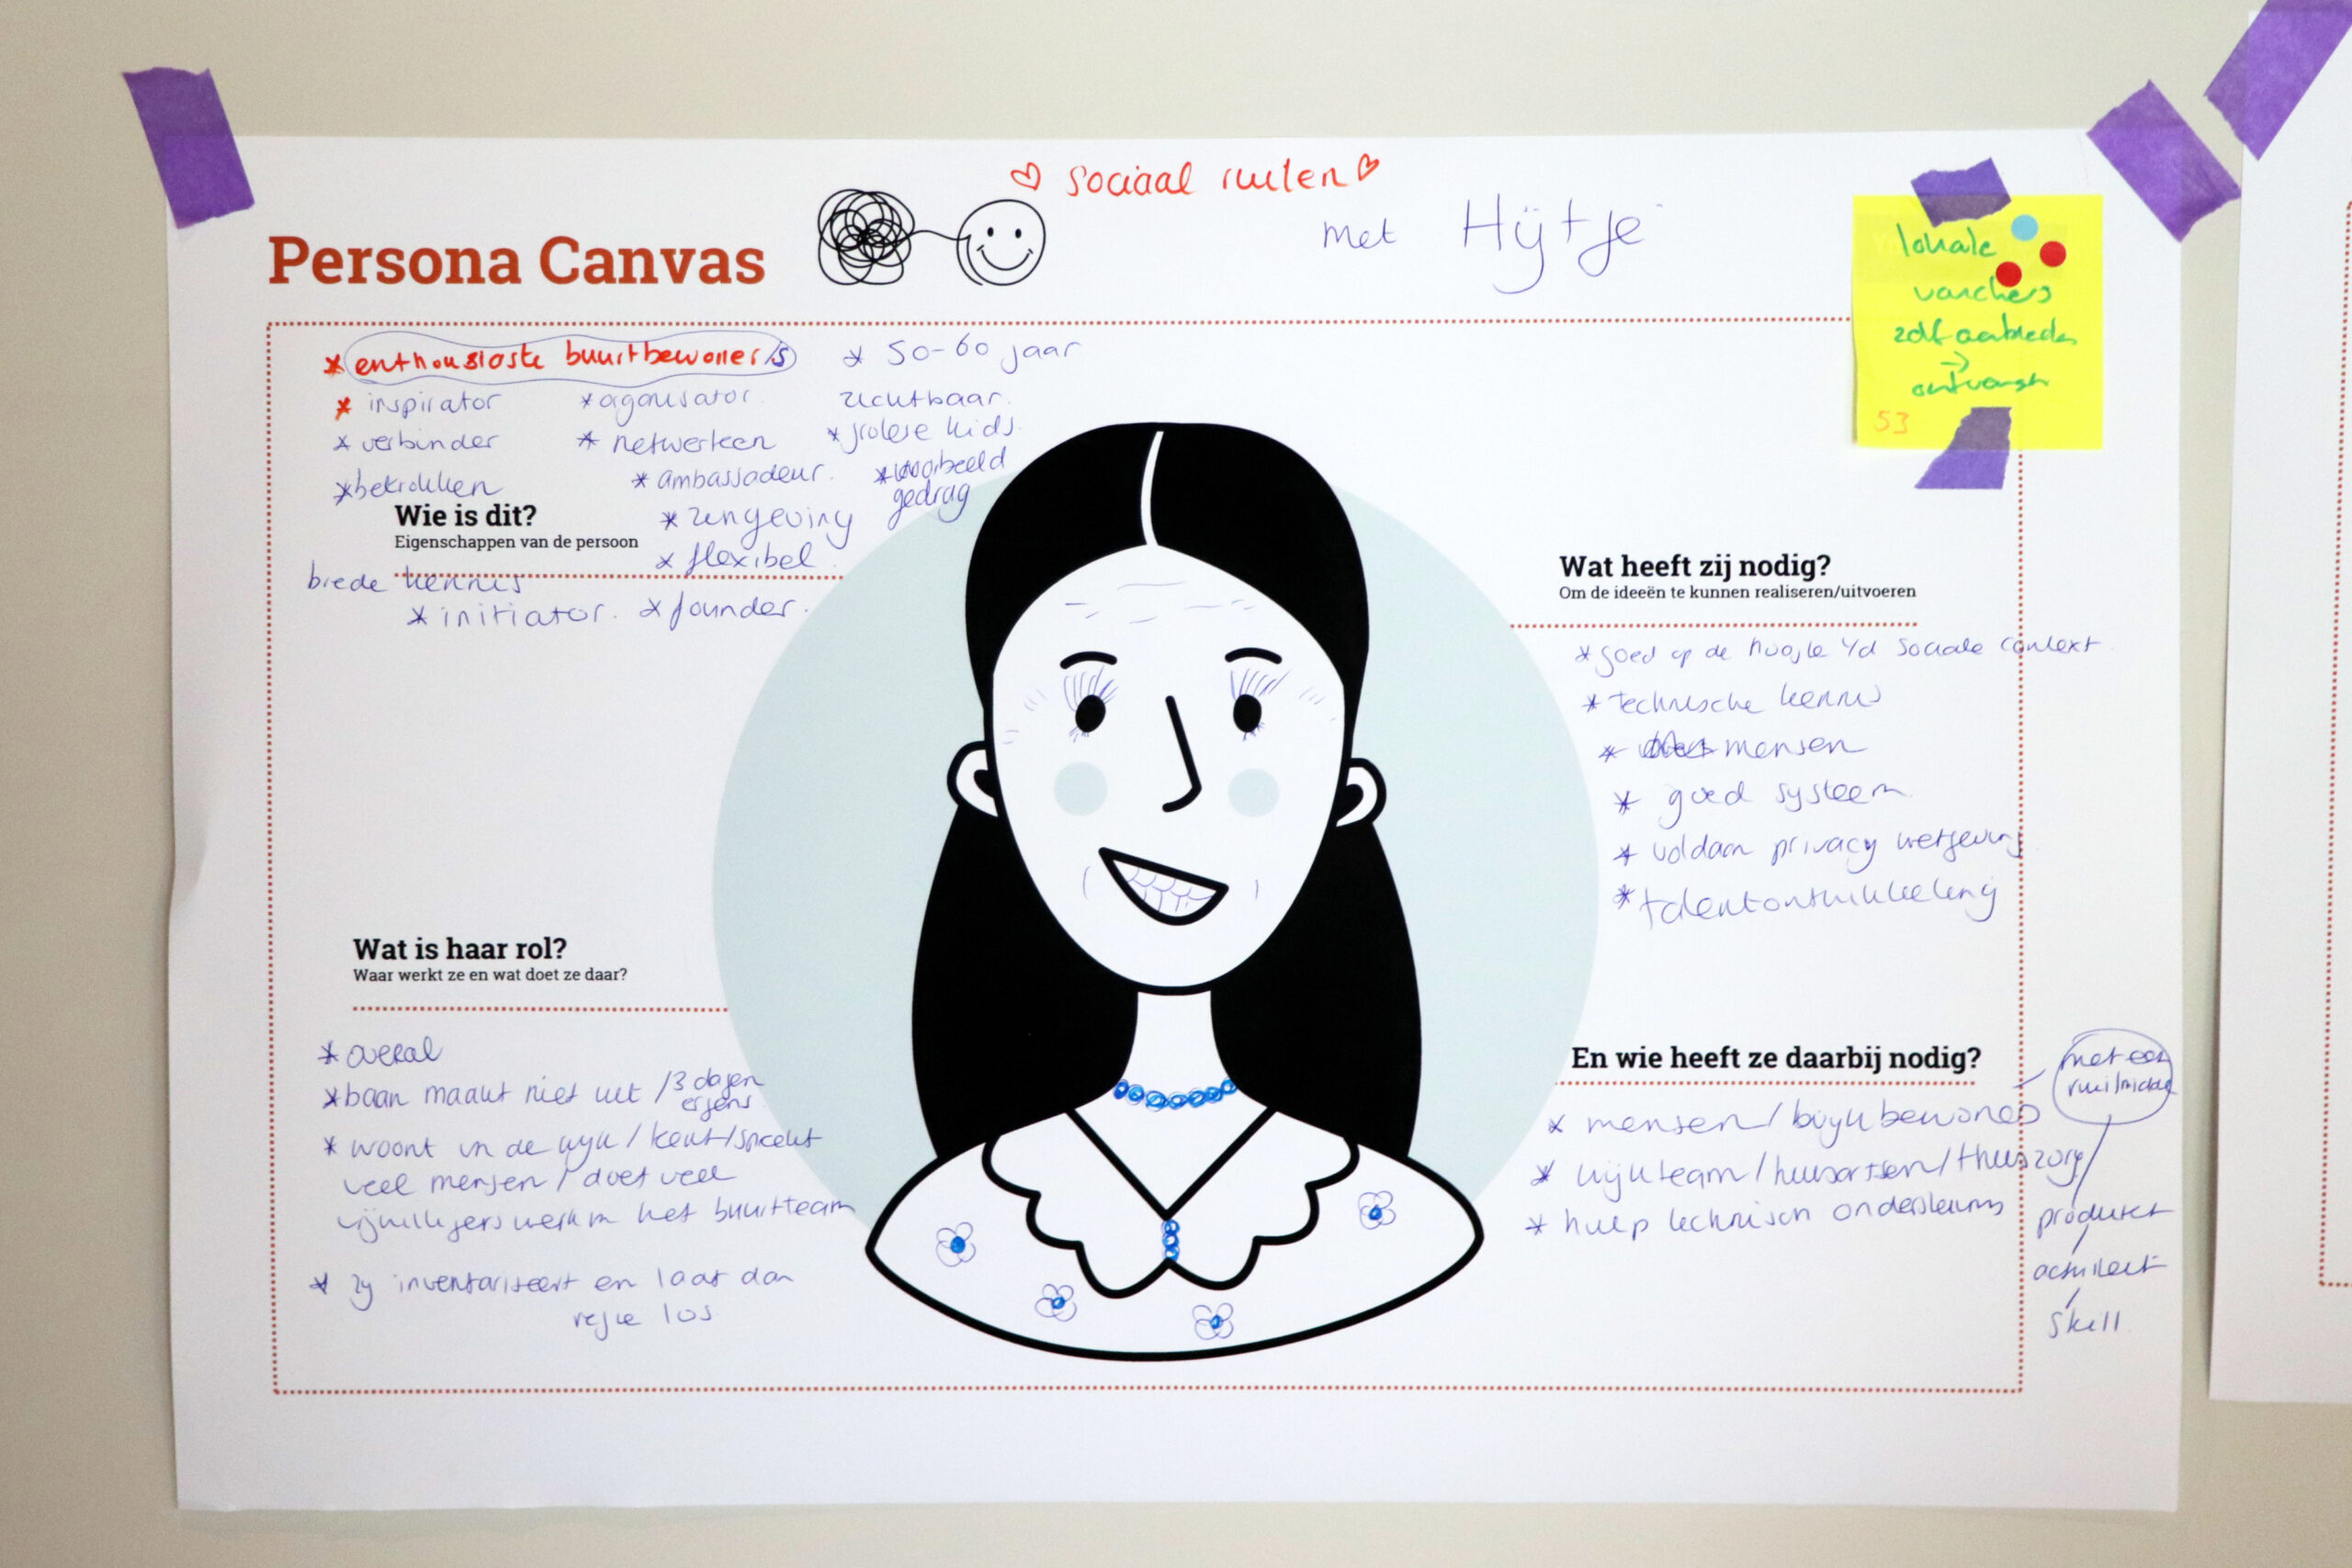 ♡ Sociaal ruilen ♡
met Hijtje
Persona Canvas
lokale
vouchers
zelf aanbieden
→
ontvangen
53
* enthousiaste buurtbewoner/s
* 50-60 jaar
* inspirator
* organisator.
zichtbaar.
* verbinder
* netwerken
* grotere kids.
* betrokken
* ambassadeur.
* voorbeeld
gedrag
Wie is dit?
Eigenschappen van de persoon
* zingeving
* flexibel
brede kennis
* initiator. * founder.
Wat heeft zij nodig?
Om de ideeën te kunnen realiseren/uitvoeren
* goed op de hoogte v/d sociale context
* technische kennis
* mensen
* goed systeem
* voldaan privacy wetgeving
* talentontwikkeling
Wat is haar rol?
Waar werkt ze en wat doet ze daar?
* overal
* baan maakt niet uit / 3 dagen
ergens
* woont in de wijk / kent/spreekt
veel mensen / doet veel
vrijwilligerswerk in het buurtteam
* zij inventariseert en laat dan
regie los
En wie heeft ze daarbij nodig?
* mensen / wijkbewoners
* wijkteam / huisartsen / thuiszorg
* hulp technisch ondersteuning
met een
ruilmiddel
product
activiteit
skill.